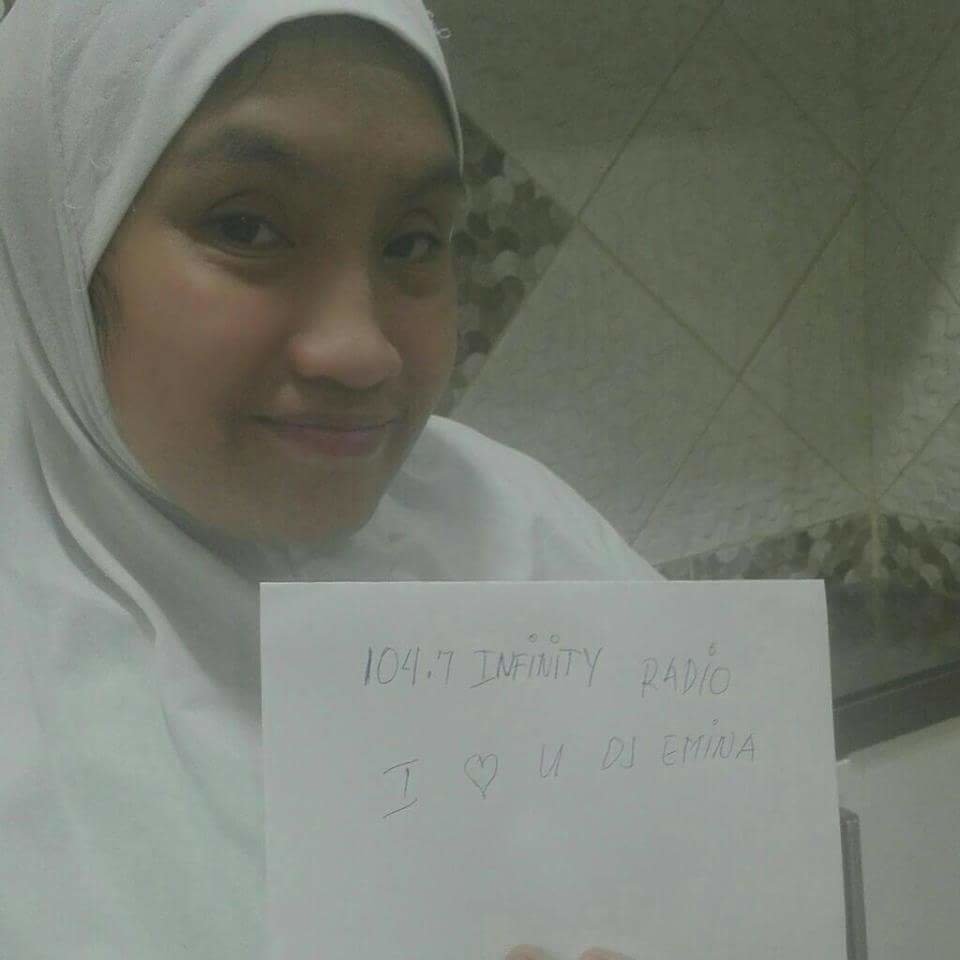 104.7 INFINITY RADIO
I ♡ U DJ EMINA